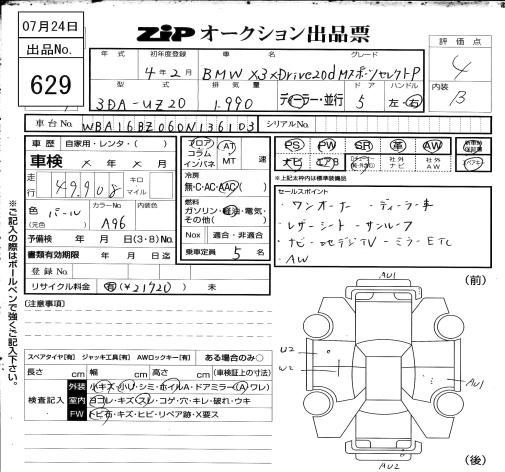 07月24日
出品No.
629
ZIP オークション出品票
年式 初年度登録 車名 グレード
4年2月 BMW X3 xDrive20d Mスポーツセレクト P
型式 排気量 ドア ハンドル
3DA-UZ20 1.990 ディーラー・並行 5 左・右
評価点
4
内装
B
車台No. WBA16BZ060N136103 シリアルNo.
車歴 自家用・レンタ・( )
車検 × 年 × 月
走行 49.908 キロ マイル
色(元色) パール カラーNo. A96 内装色
予備検 年 月 日(3・8)No.
書類有効期限 年 月 日迄
登録No.
リサイクル料金 有(¥21720) 未
フロア コラム インパネ AT MT 速
冷房
無・C・AC・AAC( )
燃料
ガソリン・軽油・電気・その他( )
Nox 適合・非適合
乗車定員 5 名
PS PW SR 革 AW
ナビ エアB 社外ナビ 社外AW
※上記太枠内は標準装備品
セールスポイント
・ワンオーナー ・ディーラー車
・レザーシート ・サンルーフ
・ナビ・地デジTV・ミラーETC
・AW
(注意事項)
スペアタイヤ[有] ジャッキ工具[有] AWロックキー[有] ある場合のみ○
長さ cm 幅 cm 高さ cm (車検証上の寸法)
検査記入
外装 小キズ・小U・シミ・ホイルA・ドアミラー(A ワレ)
室内 ヨゴレ・キズ・スレ・コゲ・穴・キレ・破れ・ウキ
FW トビ石・キズ・ヒビ・リペア跡・X要ス
※ご記入の際はボールペンで強くご記入下さい。
(前)
AU1
U2
U2
AU1
AU2
(後)